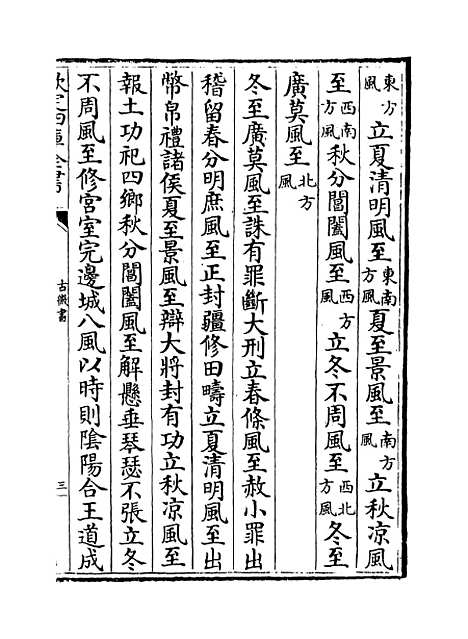 東方風立夏清明風至東南方風夏至景風至南方風立秋凉風
至西南方風秋分閶闔風至西方風立冬不周風至西北方風冬至
廣莫風至北方風
冬至廣莫風至誅有罪斷大刑立春條風至赦小罪出
稽留春分明庶風至正封疆修田疇立夏清明風至出
幣帛禮諸侯夏至景風至辯大將封有功立秋凉風至
報土功祀四鄉秋分閶闔風至解懸垂琴瑟不張立冬
不周風至修宮室完邊城八風以時則隂陽合王道成
欽定四庫全書
古微書
三